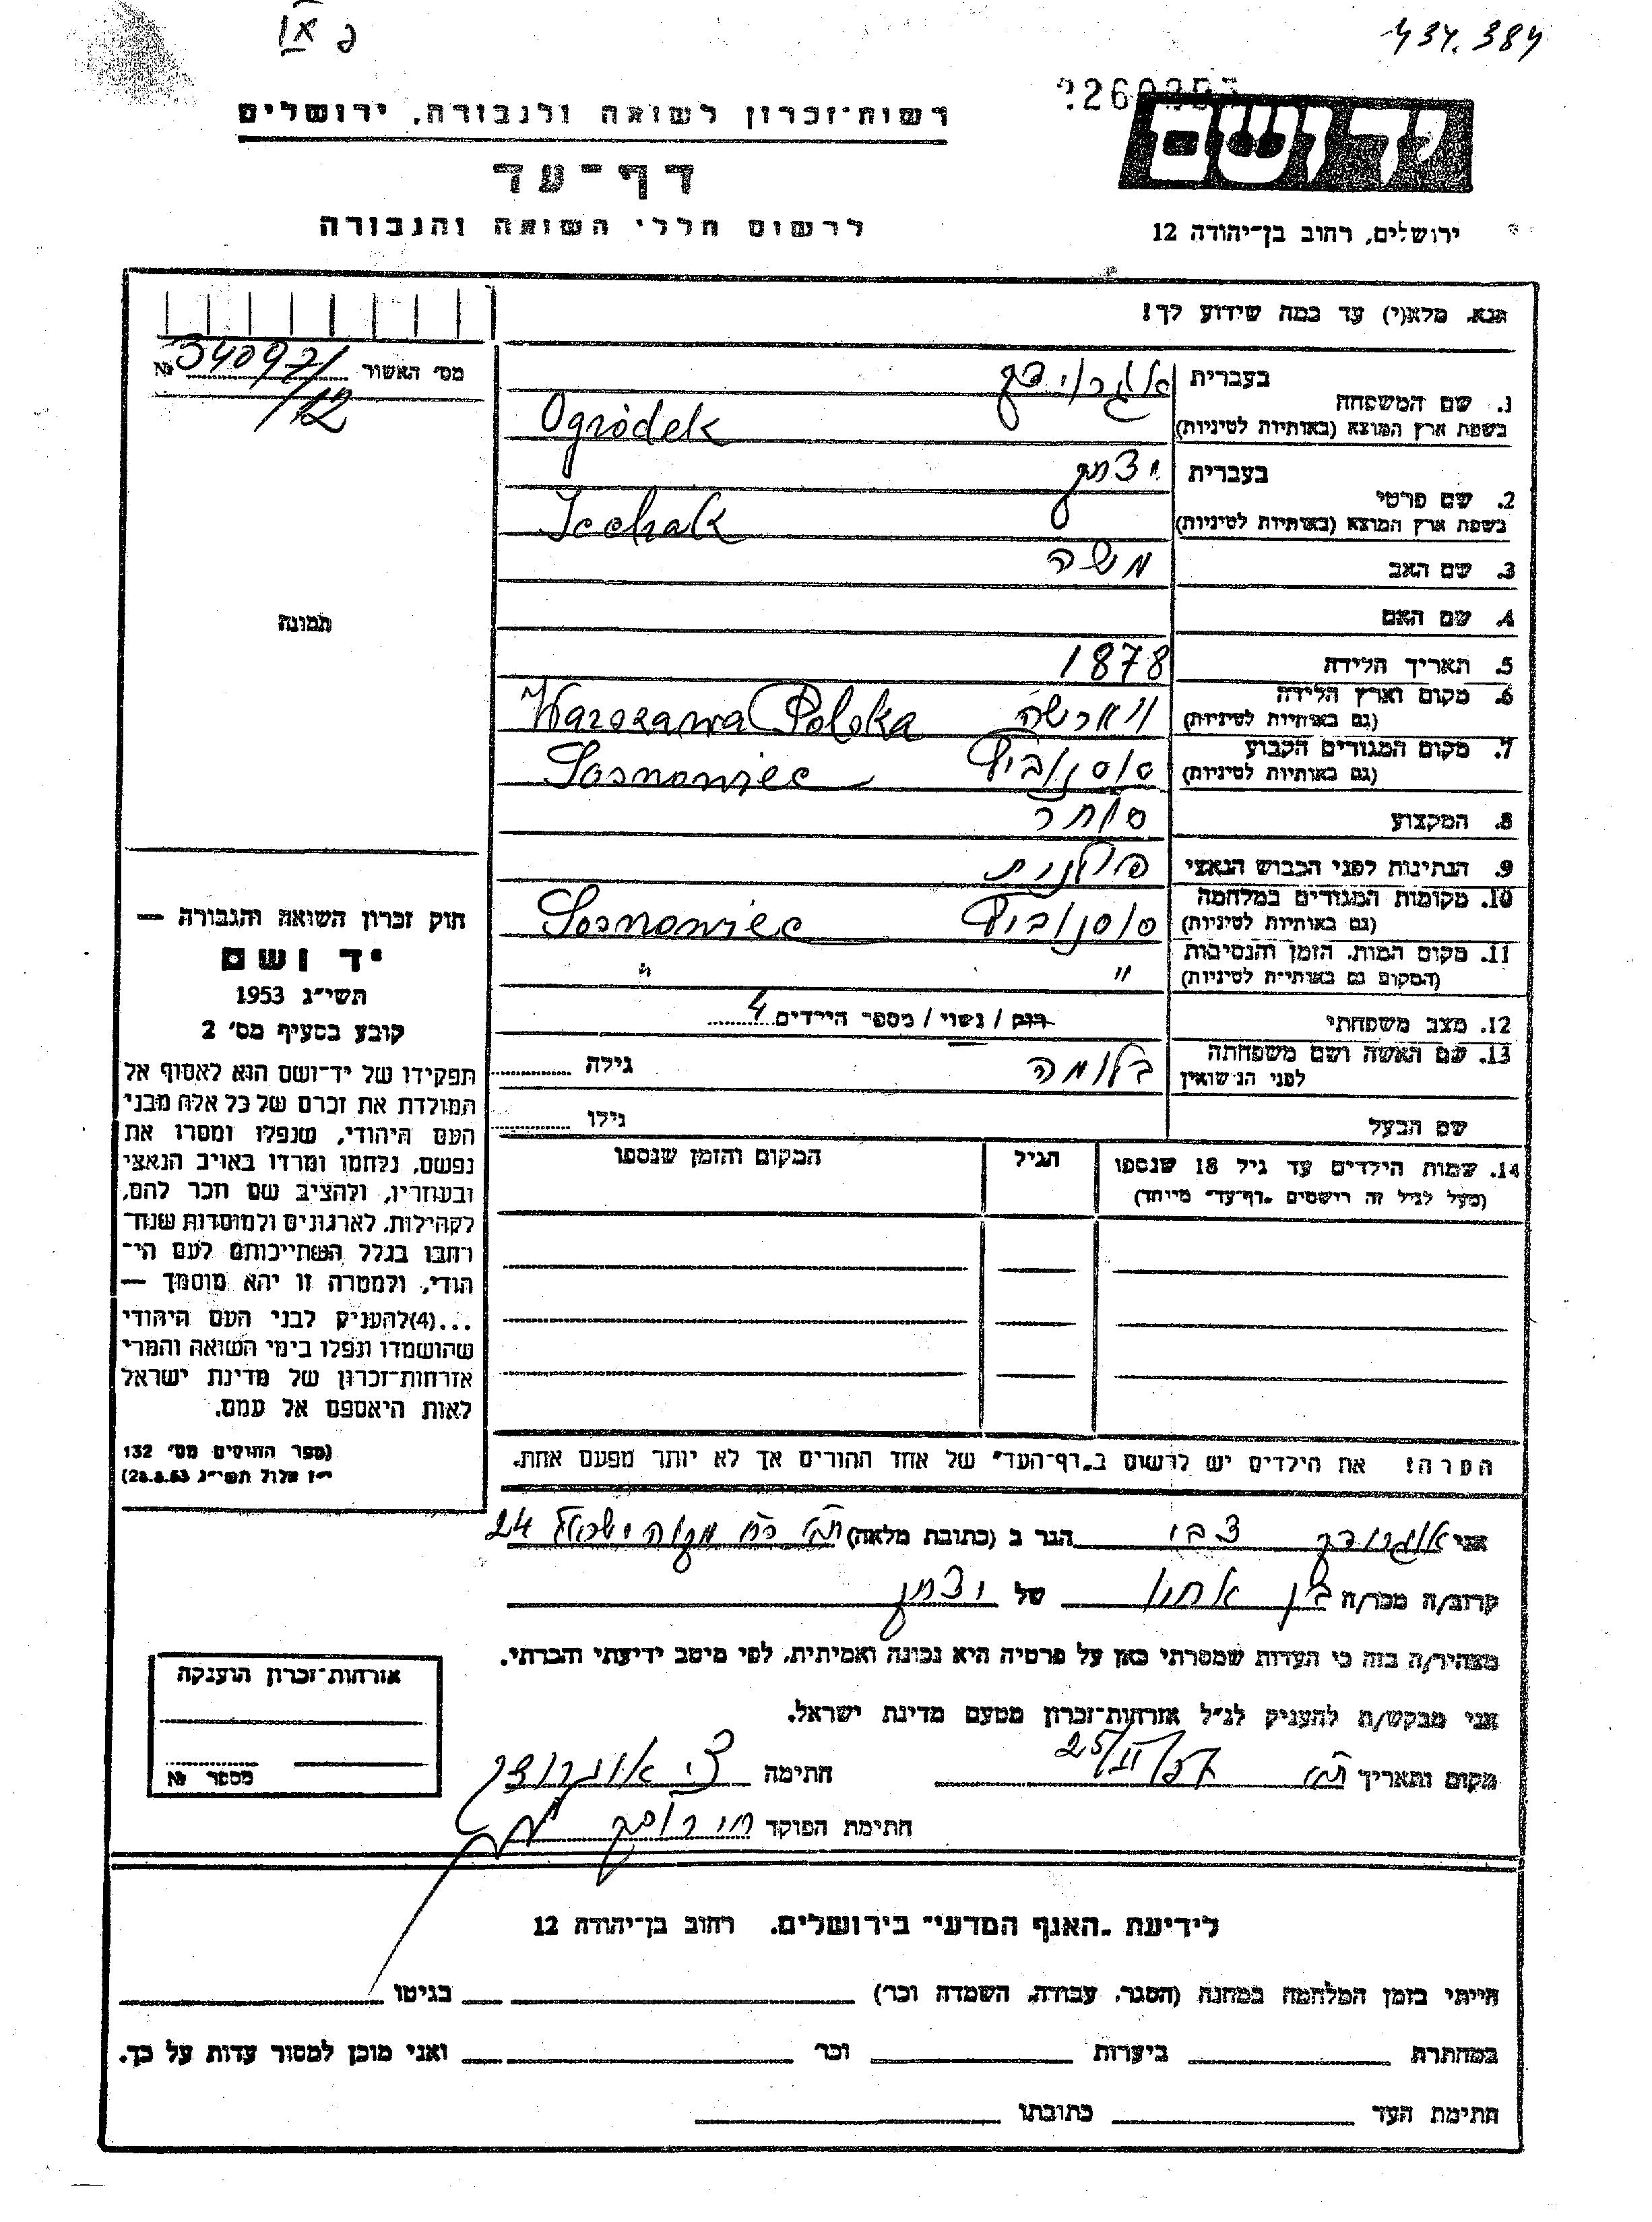 פ IX
434.384
רשות־זכרון לשואה ולגבורה, ירושלים
דף־עד
לרשום חללי השואה והגבורה
יד ושם
ירושלים, רחוב בן־יהודה 12
נא מלא(י) עד כמה שידוע לך!
מס׳ האשור 34097/ №
/12
תמונה
1. שם המשפחה
בעברית אוגרודק
בשפת ארץ המוצא (באותיות לטיניות) Ogródek
2. שם פרטי
בעברית יצחק
בשפת ארץ המוצא (באותיות לטיניות) Icchak
3. שם האב משה
4. שם האם
5. תאריך הלידה 1878
6. מקום וארץ הלידה ווארשה Warszawa Polska
(גם באותיות לטיניות)
7. מקום המגורים הקבוע סוסנוביץ Sosnowiec
(גם באותיות לטיניות)
8. המקצוע סוחר
9. הנתינות לפני הכבוש הנאצי פולנית
10. מקומות המגורים במלחמה סוסנוביץ Sosnowiec
(גם באותיות לטיניות)
11. מקום המות, הזמן והנסיבות " "
(המקום גם באותיות לטיניות)
12. מצב משפחתי רווק / נשוי / מספר הילדים 4
13. שם האשה ושם משפחתה בלומה גילה
לפני הנישואין
שם הבעל גילו
14. שמות הילדים עד גיל 18 שנספו הגיל המקום והזמן שנספו
(מעל לגיל זה רושמים „דף־עד״ מיוחד)
הערה! את הילדים יש לרשום ב„דף־העד״ של אחד ההורים אך לא יותר מפעם אחת.
חוק זכרון השואה והגבורה —
יד ושם
תשי״ג 1953
קובע בסעיף מס׳ 2
תפקידו של יד־ושם הוא לאסוף אל
המולדת את זכרם של כל אלה מבני
העם היהודי, שנפלו ומסרו את
נפשם, נלחמו ומרדו באויב הנאצי
ובעוזריו, ולהציב שם וזכר להם,
לקהילות, לארגונים ולמוסדות שנח־
רבו בגלל השתייכותם לעם הי־
הודי, ולמטרה זו יהא מוסמך —
...(4) להעניק לבני העם היהודי
שהושמדו ונפלו בימי השואה והמרי
אזרחות־זכרון של מדינת ישראל
לאות היאספם אל עמם.
(ספר החוקים מס׳ 132
י״ז אלול תשי״ג 28.8.53)
אני אוגרודק צבי הגר ב (כתובת מלאה) ת״א רח׳ מקוה ישראל 24
קרוב/ה מכר/ה בן אחיו של יצחק
מצהיר/ה בזה כי העדות שמסרתי כאן על פרטיה היא נכונה ואמיתית, לפי מיטב ידיעתי והכרתי.
אני מבקש/ת להעניק לנ״ל אזרחות־זכרון מטעם מדינת ישראל.
מקום ותאריך ת״א 25/II/57 חתימה צבי אוגרודק
חתימת הפוקד
אזרחות־זכרון הוענקה
מספר №
לידיעת „האגף המדעי״ בירושלים. רחוב בן־יהודה 12
הייתי בזמן המלחמה במחנה (הסגר, עבודה, השמדה וכר׳) בגיטו
במחתרת ביערות וכר׳ ואני מוכן למסור עדות על כך.
חתימת העד כתובתו